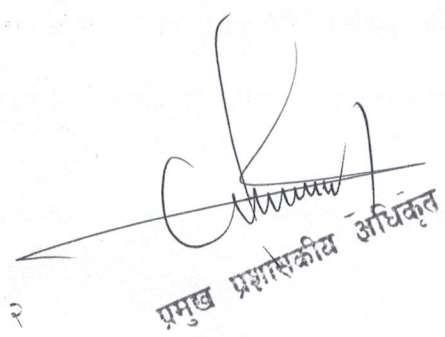 प्रमुख प्रशासकीय अधिकृत
२